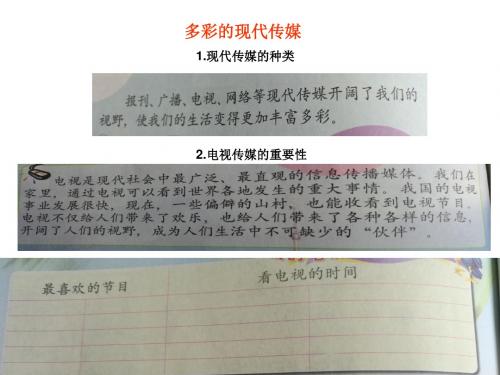 多彩的现代传媒
1.现代传媒的种类
报刊、广播、电视、网络等现代传媒开阔了我们的
视野，使我们的生活变得更加丰富多彩。
2.电视传媒的重要性
电视是现代社会中最广泛、最直观的信息传播媒体。我们在
家里，通过电视可以看到世界各地发生的重大事情。我国的电视
事业发展很快，现在，一些偏僻的山村，也能收看到电视节目。
电视不仅给人们带来了欢乐，也给人们带来了各种各样的信息，
开阔了人们的视野，成为人们生活中不可缺少的“伙伴”。
最喜欢的节目 看电视的时间